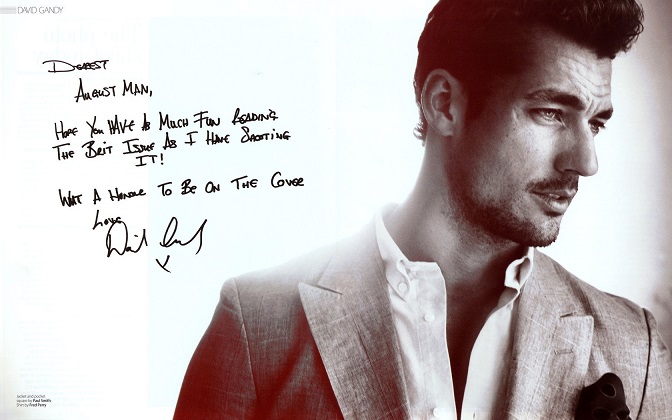 DAVID GANDY
DEAREST
AUGUST MAN,
HOPE YOU HAVE AS MUCH FUN READING
THE BRIT ISSUE AS I HAVE SHOOTING
IT!
WHAT A HONOUR TO BE ON THE COVER
LOVE
X
Jacket and pocket
square by Paul Smith
Shirt by Fred Perry